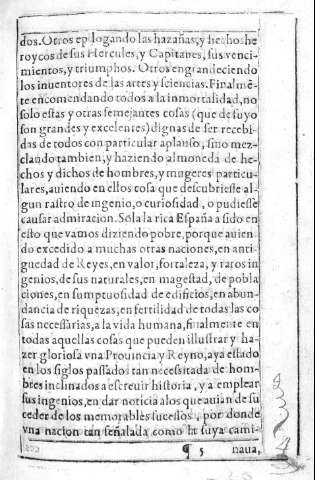 dos. Otros epilogando las hazañas, y hechos he
roycos de sus Hercules, y Capitanes, sus venci-
mientos, y triumphos. Otros engrandeciendo
los inuentores de las artes y sciencias. Finalmē-
te encomendando todos a la inmortalidad, no
solo estas y otras semejantes cosas (que de suyo
son grandes y excelentes) dignas de ser recebi-
das de todos con particular aplauso, sino mez-
clando tambien, y haziendo almoneda de he-
chos y dichos de hombres, y mugeres particu-
lares, auiendo en ellos cosa que descubriesse al-
gun rastro de ingenio, o curiosidad, o pudiesse
causar admiracion. Sola la rica España a sido en
esto que vamos diziendo pobre, porque auien-
do excedido a muchas otras naciones, en anti-
guedad de Reyes, en valor, fortaleza, y raros in
genios, de sus naturales, en magestad, de pobla
ciones, en sumptuosidad de edificios, en abun-
dancia de riquezas, en fertilidad de todas las co
sas necessarias, a la vida humana, finalmente en
todas aquellas cosas que pueden illustrar y ha-
zer gloriosa vna Prouincia y Reyno, aya estado
en los siglos passados tan necessitada de hom-
bres inclinados a escreuir historia, y a emplear
sus ingenios, en dar noticia a los que auian de su
ceder de los memorables sucessos, por donde
vna nacion tan señalada como la suya cami-
¶ 5 naua,